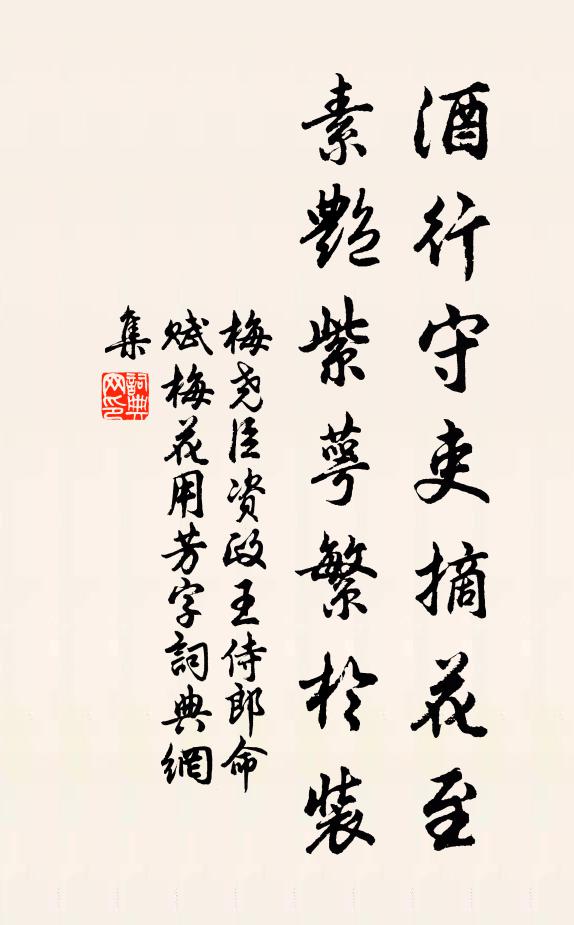 酒行守吏摘花至
素艷紫萼繁於裝
梅尧臣资政王侍郎命
赋梅花用芳字詞典網
集
詞典
网印